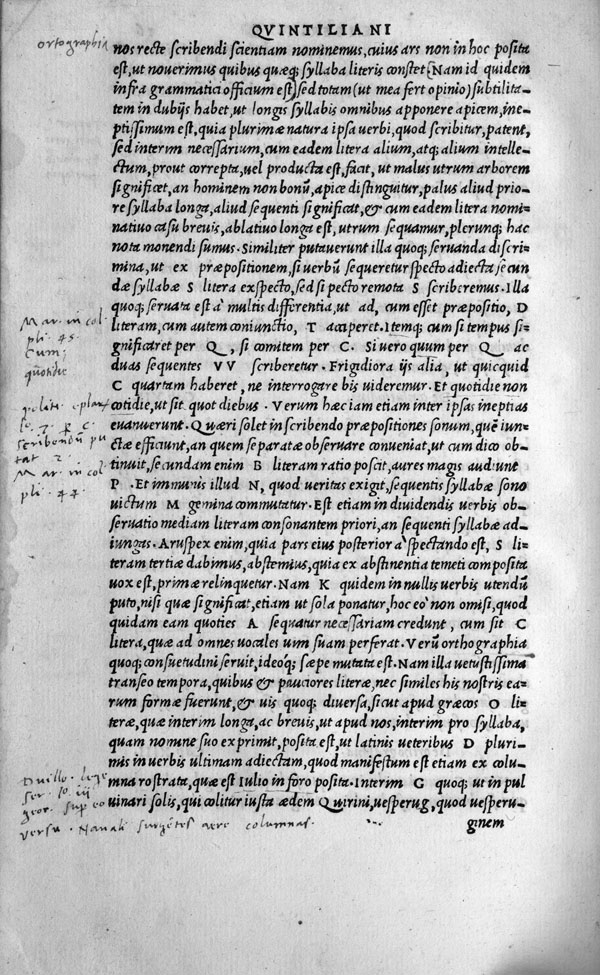 QVINTILIANI
ortographia
nos recte scribendi scientiam nominemus, cuius ars non in hoc posita
est, ut nouerimus quibus quæq; syllaba literis constet (Nam id quidem
infra grammatici officium est) sed totam (ut mea fert opinio) subtilita-
tem in dubijs habet, ut longis syllabis omnibus apponere apicem, ine-
ptissimum est, quia plurimæ natura ipsa uerbi, quod scribitur, patent,
sed interim necessarium, cum eadem litera alium, atq; alium intelle-
ctum, prout correpta, uel producta est, facit, ut malus utrum arborem
significet, an hominem non bonū, apice distinguitur, palus aliud prio-
re syllaba longa, aliud sequenti significat, & cum eadem litera nomi-
natiuo casu breuis, ablatiuo longa est, utrum sequamur, plerunq; hac
nota monendi sumus. Similiter putauerunt illa quoq; seruanda discri-
mina, ut ex præpositionem, si uerbū sequeretur specto adiecta secun
dæ syllabæ S litera exspecto, sed si pecto remota S scriberemus. Illa
quoq; seruata est à multis differentia, ut ad, cum esset præpositio, D
literam, cum autem coniunctio, T acciperet. Itemq; cum si tempus si-
gnificaret per Q, si comitem per C. Si uero quum per Q ac
duas sequentes VV scriberetur. Frigidiora ijs alia, ut quicquid
C quartam haberet, ne interrogare bis uideremur. Et quotidie non
cotidie, ut sit quot diebus. Verum hæc iam etiam inter ipsas ineptias
euanuerunt. Quæri solet in scribendo præpositiones sonum, quē iun-
ctæ efficiunt, an quem separatæ obseruare conueniat, ut cum dico ob-
tinuit, secundam enim B literam ratio poscit, aures magis audiunt
P. Et immunis illud N, quod ueritas exigit, sequentis syllabæ sono
uictum M gemina commutatur. Est etiam in diuidendis uerbis ob-
seruatio mediam literam consonantem priori, an sequenti syllabæ ad-
iungas. Aruspex enim, quia pars eius posterior à spectando est, S li-
teram tertiæ dabimus, abstemius, quia ex abstinentia temeti composita
uox est, primæ relinquetur. Nam K quidem in nullis uerbis utendū
puto, nisi quæ significat, etiam ut sola ponatur, hoc eo non omisi, quod
quidam eam quoties A sequatur necessariam credunt, cum sit C
litera, quæ ad omnes uocales uim suam perferat. Verū orthographia
quoq; consuetudini seruit, ideoq; sæpe mutata est. Nam illa uetustissima
transeo tempora, quibus & pauciores literæ, nec similes his nostris ea-
rum formæ fuerunt, & uis quoq; diuersa, sicut apud græcos O li-
teræ, quæ interim longa, ac breuis, ut apud nos, interim pro syllaba,
quam nomine suo exprimit, posita est, ut latinis ueteribus D pluri-
mis in uerbis ultimam adiectam, quod manifestum est etiam ex colu-
mna rostrata, quæ est Iulio in foro posita. Interim G quoq; ut in pul
uinari solis, qui colitur iuxta ædem Quirini, uesperug, quod uesperu-
ginem
Mar. in col
pli. 45.
Cum;
quotidie
polit.
scribendū pu
tat
Mar. in col
pli. 44.
Duillo. lege
ser. lo iij
geor. sup eo
versu. Nauali surgētes aere columnas.